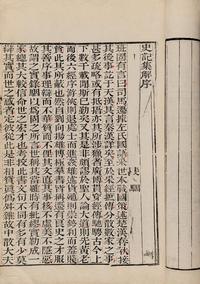 史記集解序
裴駰
班固有言曰司馬遷據左氏國語采世本戰國策述楚漢春秋接
其後事訖于天漢其言秦漢詳矣至於采經摭傳分散數家之事
甚多疏略或有抵捂亦其所涉獵者廣博貫穿經傳馳騁古今上
下數千載閒斯已勤矣又其是非頗謬於聖人論大道則先黃老
而後六經序游俠則退處士而進姦雄述貨殖則崇勢利而羞賤
貧此其所蔽也然自劉向揚雄博極羣書皆稱遷有良史之才服
其善序事理辯而不華質而不俚其文直其事核不虛美不隱惡
故謂之實錄駰以爲固之所言世稱其當雖時有紕繆實勒成一
家總其大較信命世之宏才也考較此書文句不同有多有少莫
辯其實而世之惑者定彼從此是非相貿真僞舛雜故中散大夫